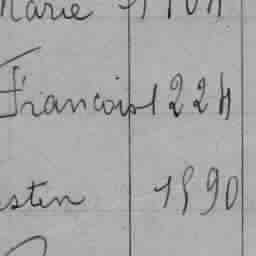 Marie
Francois 1224
sten 1890